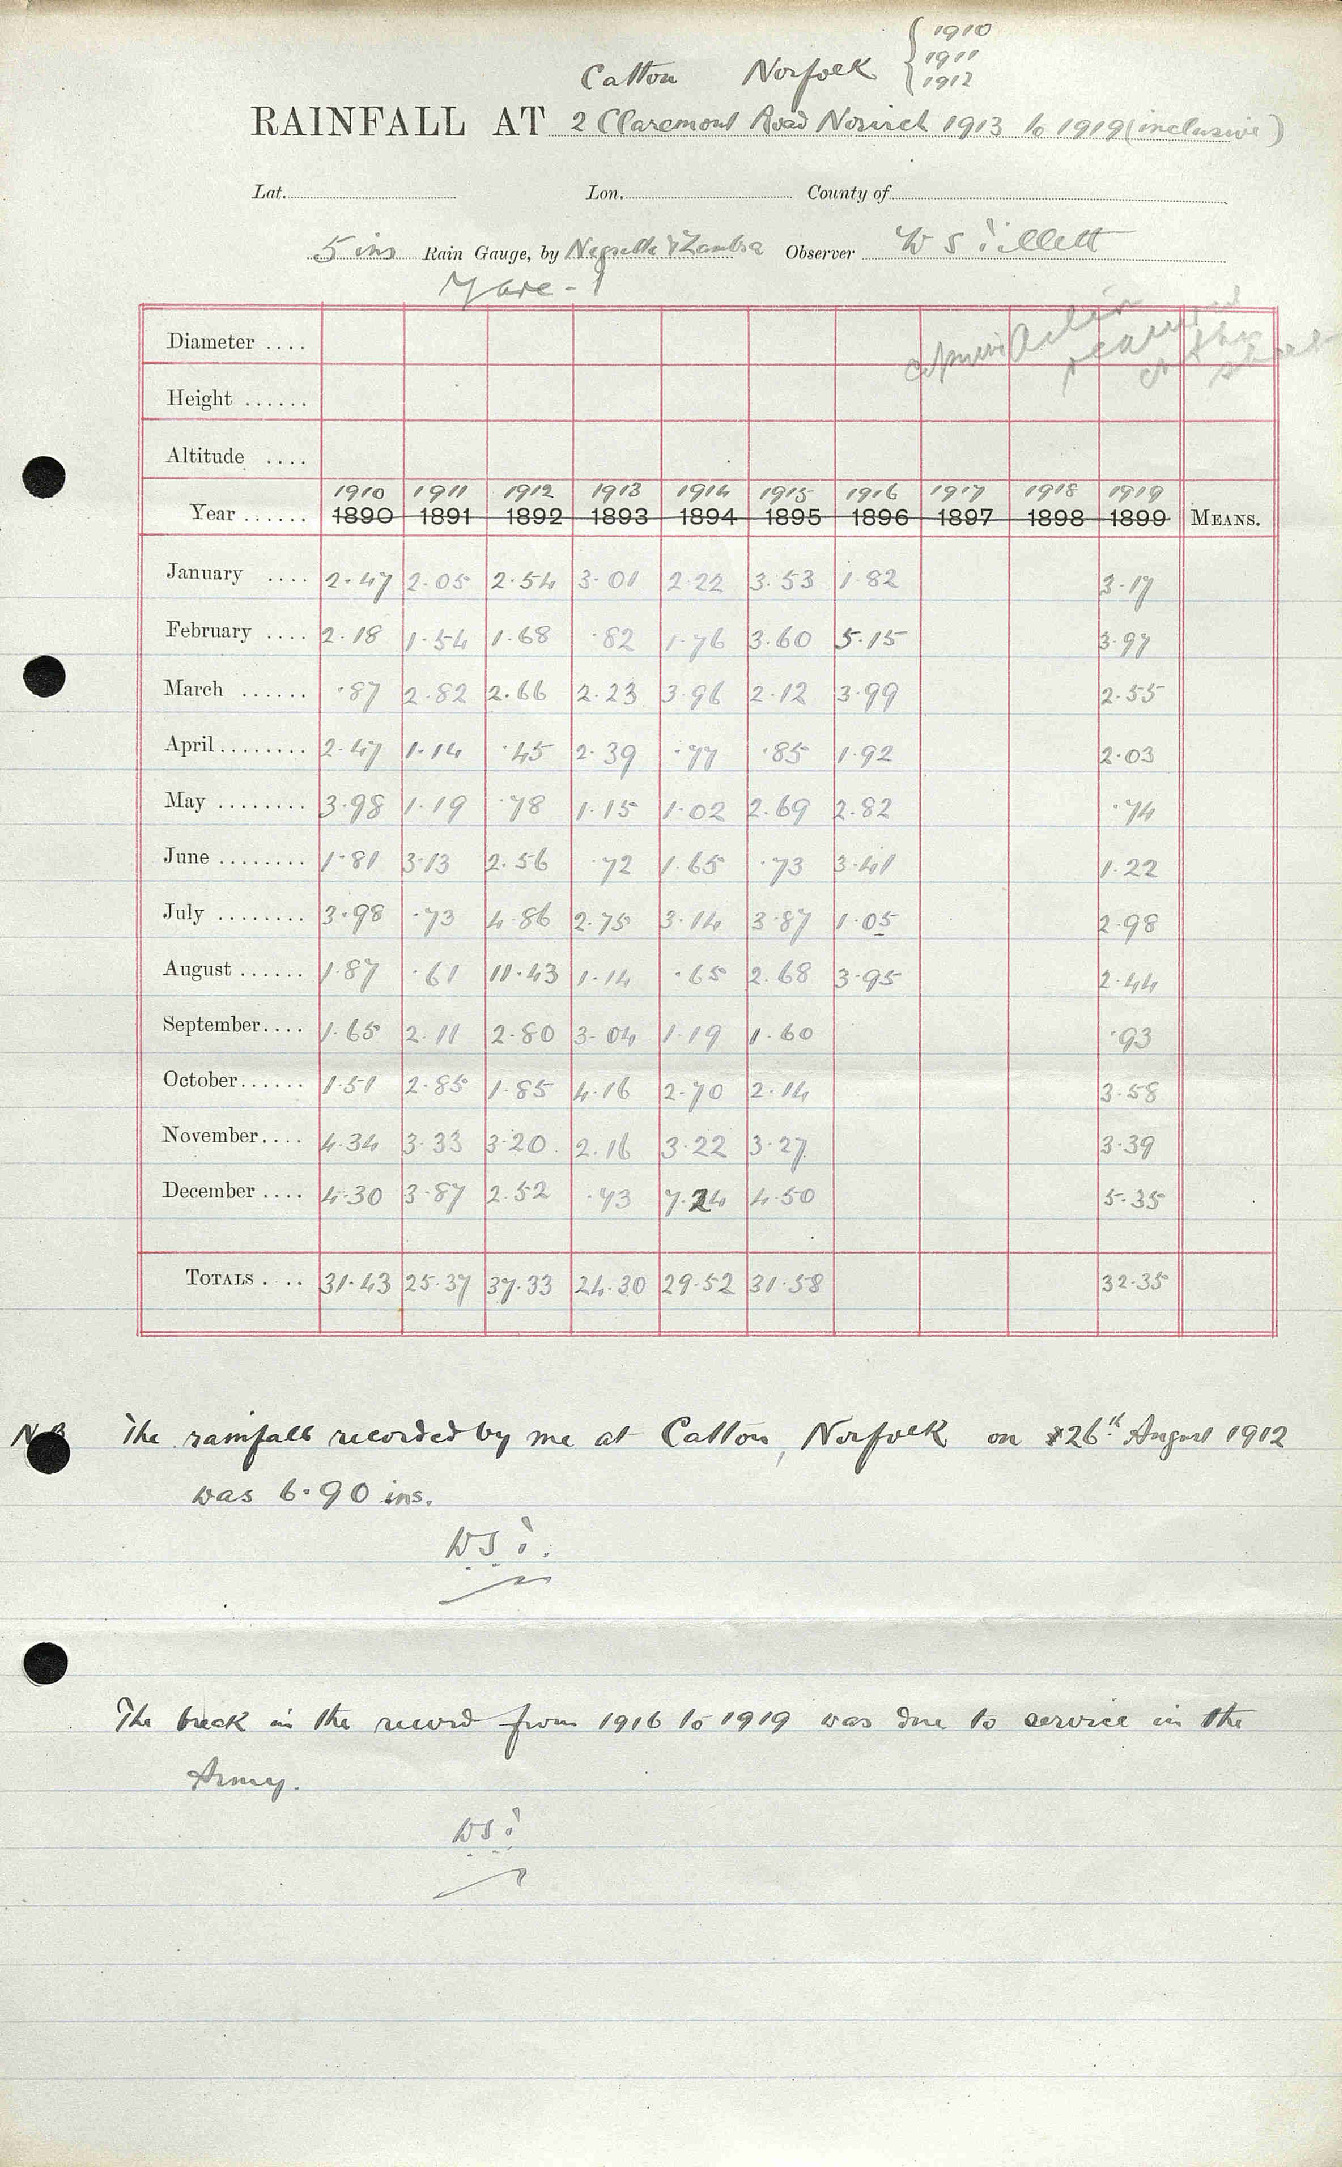 Catton Norfolk { 1910
1911
1912
RAINFALL AT 2 Claremont Road Norwich 1913 to 1919 (inclusive)
Lat. Lon. County of
5 ins Rain Gauge, by Negretti & Zambra Observer W S Tillett
Yare - 1
Diameter ....
required
Height ......
Altitude ....
1910 1911 1912 1913 1914 1915 1916 1917 1918 1919
Year ...... 1890 1891 1892 1893 1894 1895 1896 1897 1898 1899 MEANS.
January .... 2.47 2.05 2.54 3.01 2.22 3.53 1.82 3.17
February .... 2.18 1.54 1.68 .82 1.76 3.60 5.15 3.97
March ...... .87 2.82 2.66 2.23 3.96 2.12 3.99 2.55
April ........ 2.47 1.14 .45 2.39 .77 .85 1.92 2.03
May ........ 3.98 1.19 .78 1.15 1.02 2.69 2.82 .74
June ........ 1.81 3.13 2.56 .72 1.65 .73 3.41 1.22
July ........ 3.98 .73 4.86 2.75 3.14 3.87 1.05 2.98
August ...... 1.87 .61 11.43 1.14 .65 2.68 3.95 2.44
September .... 1.65 2.11 2.80 3.04 1.19 1.60 .93
October ...... 1.51 2.85 1.85 4.16 2.70 2.14 3.58
November .... 4.34 3.33 3.20 2.16 3.22 3.27 3.39
December .... 4.30 3.87 2.52 .73 7.24 4.50 5.35
TOTALS .... 31.43 25.37 37.33 24.30 29.52 31.58 32.35
N.B. The rainfall recorded by me at Catton, Norfolk on 26th August 1912
was 6.90 ins.
W S T.
The break in the record from 1916 to 1919 was due to service in the
Army.
W S T